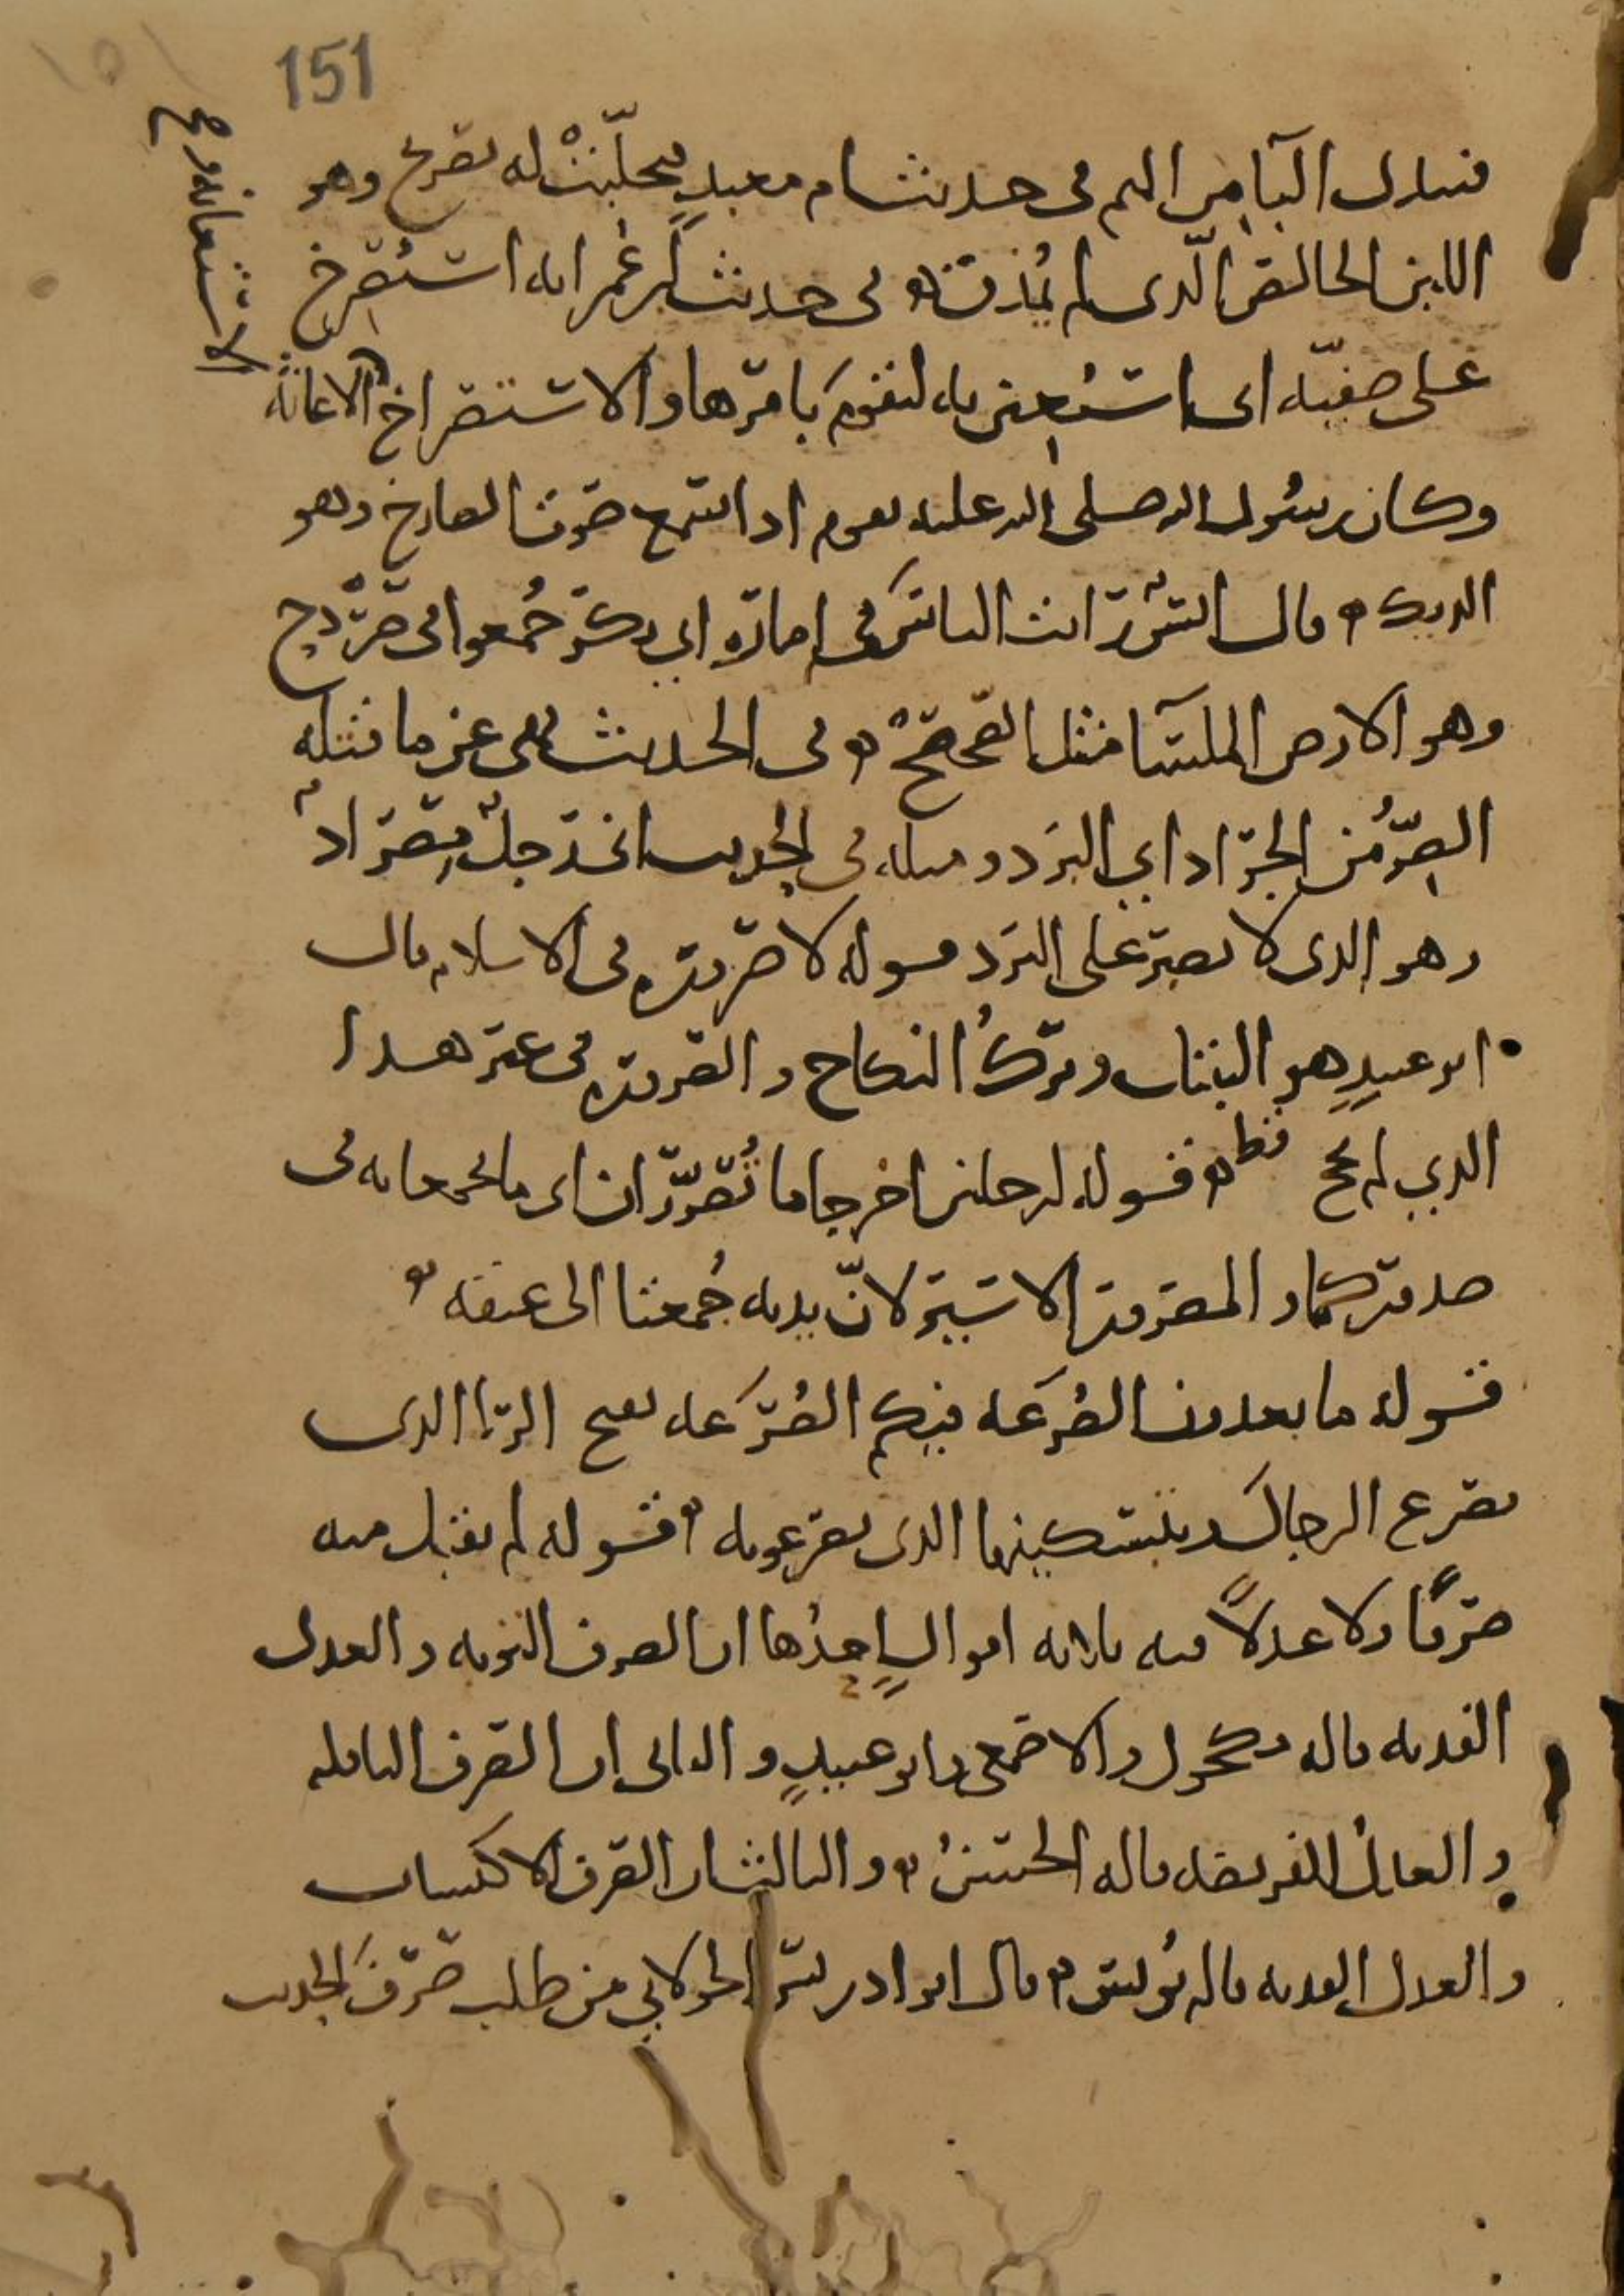 151
فتبارك الثامن اليم في حديث ام معبد فتحلّبت له بصريح وهو
اللبن الخالص الّذي لم يُمذق في حديث ابن عُمر انه استُصرخ
على صفيّه اي استُعين به لتقوم بامرها والاستصراخ الاغاثة
الاستغاثة صح
وكان رسول الله صلى الله عليه يقوم اذا سمع صوت الصارخ وهو
الديك قال انس رايت الناس في امارة ابي بكر جُمعوا في صردح
وهو الارض الملسا مثل الصحصح في الحديث نهى عن ما قتله
الصِّر من الجراد اي البرد ومثله في الحديث اني رجل مصراد
وهو الذي لا يصبر على البرد قوله لا صرورة في الاسلام قال
ابو عبيدٍ هو التبتل وترك النكاح والصرورة في غير هذا
الذي لم يحج قط قوله لرجلين اخرجا ما تُصرّران اي ما تجمعانه في
صدوركما والمصرور الاسير لانّ يديه جُمعتا الى عنقه
قوله ما تعدون الصُرَعه فيكم الصُرَعه بفتح الرا الذي
يصرع الرجال وبتسكينها الذي يصرعونه قوله لم يقبل منه
صرفًا ولا عدلاً فيه ثلاثه اقوال احدُها ان الصرف التوبه والعدل
الفديه قاله مكحول والاصمعي وابو عبيدٍ والثاني ان الصرف النافله
والعدل الفريضه قاله الحسنُ والثالث ان الصرف الاكتساب
والعدل الفديه قاله يُونس قال ابو ادريس الخولاني من طلب صَرْفَ الحديث